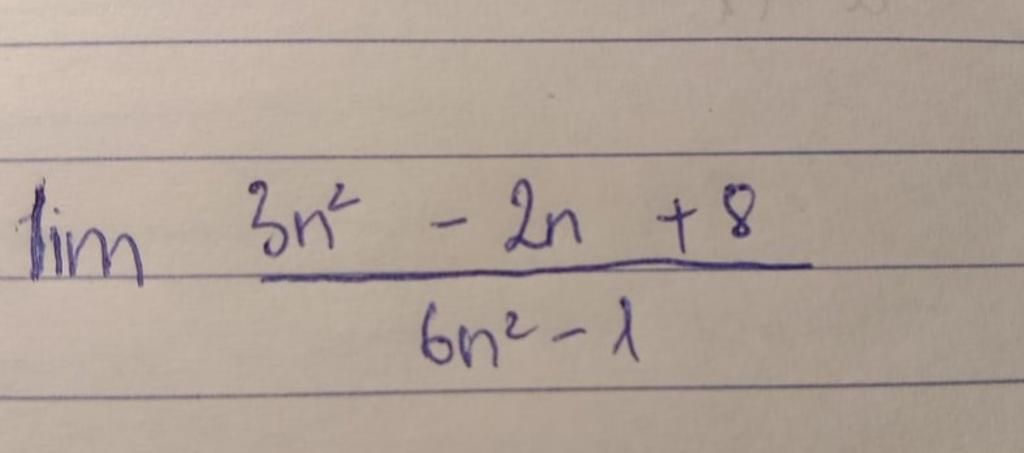 lim 3n² - 2n + 8
6n² - 1